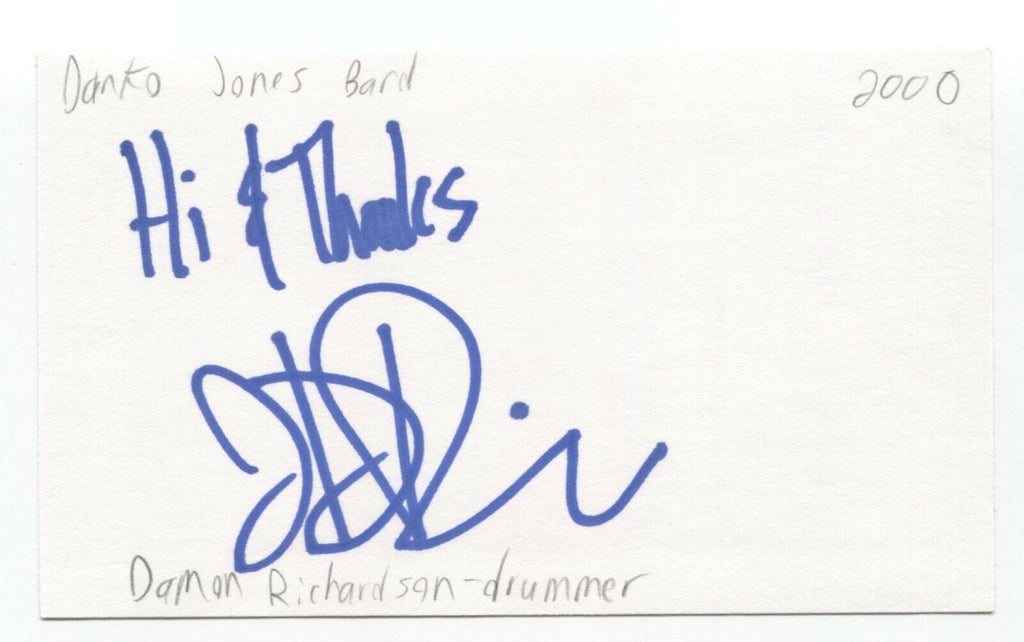 Danko Jones Band 2000
Hi & Thanks
Damon Richardson-drummer